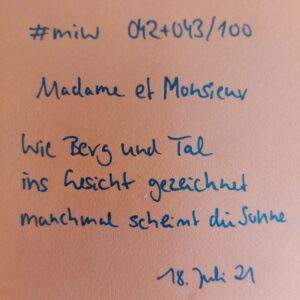 #miw 042+043/100
Madame et Monsieur
Wie Berg und Tal
ins Gesicht gezeichnet
manchmal scheint die Sonne
18. Juli 21